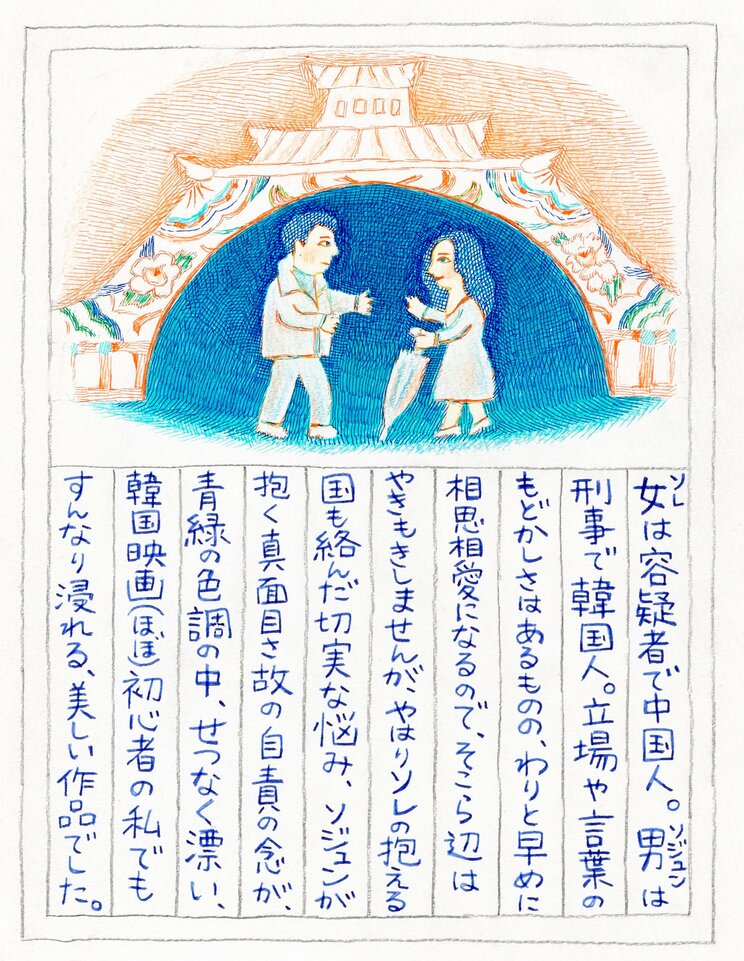 女は容疑者で中国人。男は
ソレ
ソジュン
刑事で韓国人。立場や言葉の
もどかしさはあるものの、わりと早めに
相思相愛になるので、そこら辺は
やきもきしませんが、やはりソレの抱える
国も絡んだ切実な悩み、ソジュンが
抱く真面目さ故の自責の念が、
青緑の色調の中、せつなく漂い、
韓国映画(ほぼ)初心者の私でも
すんなり浸れる、美しい作品でした。